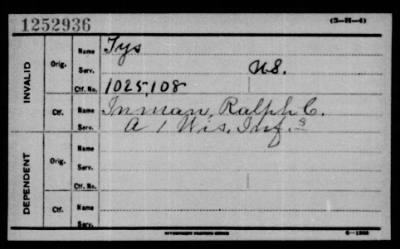 1252936 (3-H-4)
INVALID
Orig. Name Tys
Serv. U.S.
Ctf. No. 1025,108
Ctf. Name Inman, Ralph C.
Serv. A 1 Wis. Inf.
DEPENDENT
Orig. Name
Serv.
Ctf. No.
Ctf. Name
Serv.